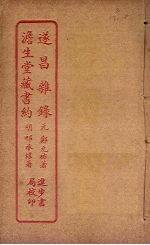 遂昌雜錄 元 鄭元祐著
澹生堂藏書約 明 祁承㸁著
進步書局校印